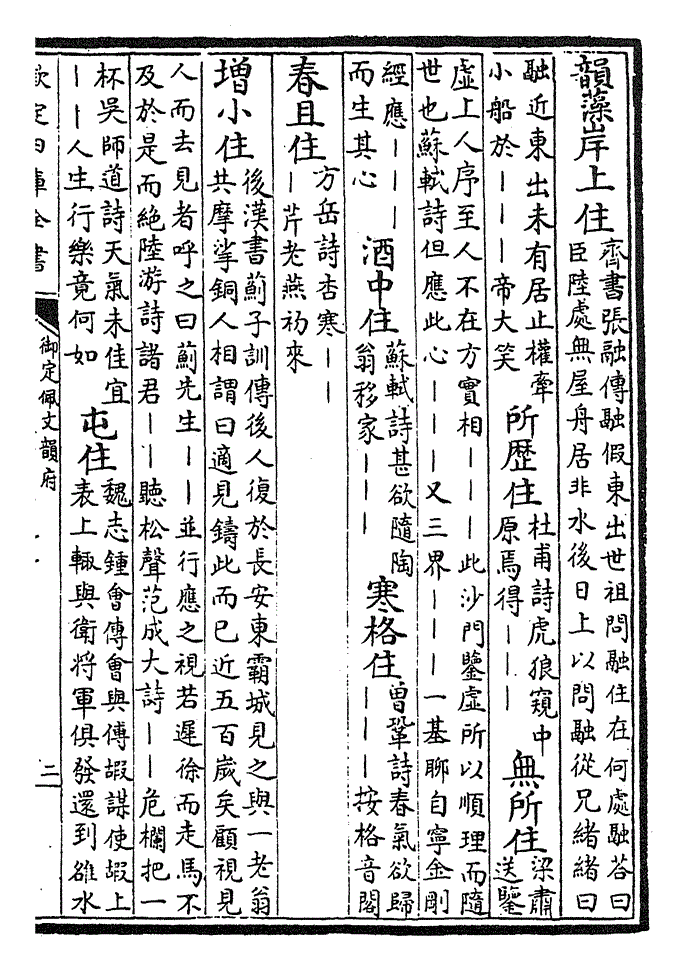 韻藻岸上住
齊書張融傳融假東出世祖問融住在何處融荅曰
臣陸處無屋舟居非水後日上以問融從兄緒緒曰
融近東出未有居止權牽
小船於｜｜｜帝大笑
所歴住
杜甫詩虎狼窺中
原焉得｜｜｜
無所住
梁肅
送鑒
虛上人序至人不在方實相｜｜｜此沙門鑒虛所以順理而隨
世也蘇軾詩但應此心｜｜｜又三界｜｜｜一基聊自寧金剛
經應｜｜｜
而生其心
酒中住
蘇軾詩甚欲隨陶
翁移家｜｜｜
寒格住
曾鞏詩春氣欲歸
｜｜｜按格音閣
春且住
方岳詩杏寒｜｜
｜芹老燕初來
增小住
後漢書薊子訓傳後人復於長安東霸城見之與一老翁
共摩挲銅人相謂曰適見鑄此而已近五百歲矣顧視見
人而去見者呼之曰薊先生｜｜並行應之視若遲徐而走馬不
及於是而絶陸游詩諸君｜｜聽松聲范成大詩｜｜危欄把一
杯吳師道詩天氣未佳宜
｜｜人生行樂竟何如
屯住
魏志鍾會傳會與傅嘏謀使嘏上
表上輒與衛將軍俱發還到雒水
欽定四庫全書
御定佩文韻府
二